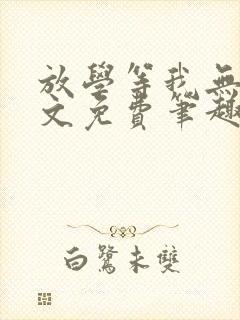 放學等我無
文免費筆趣
白鷺未雙